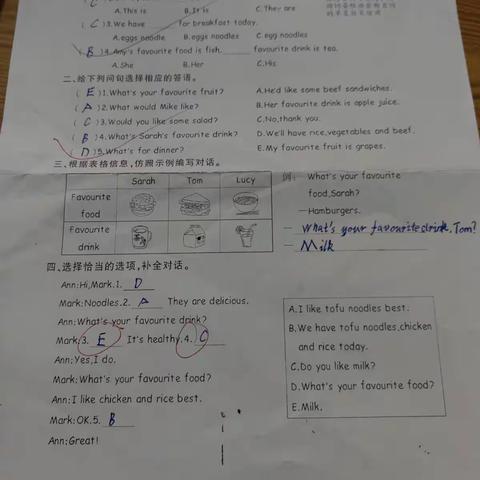 A.This is B.It is C.They are
( C )3.We have ____ for breakfast today.
A.eggs noodle B.eggs noodles C.egg noodles
( B )4.Amy's favourite food is fish. ____ favourite drink is tea.
A.She B.Her C.His
二、给下列问句选择相应的答语。
( E )1.What's your favourite fruit? A.He'd like some beef sandwiches.
( A )2.What would Mike like? B.Her favourite drink is apple juice.
( C )3.Would you like some salad? C.No,thank you.
( B )4.What's Sarah's favourite drink? D.We'll have rice,vegetables and beef.
( D )5.What's for dinner? E.My favourite fruit is grapes.
三、根据表格信息,仿照示例编写对话。
Sarah Tom Lucy
Favourite food
Favourite drink
例: — What's your favourite
food,Sarah?
—Hamburgers.
— What's your favourite drink, Tom?
— Milk
四、选择恰当的选项,补全对话。
Ann:Hi,Mark.1. D
Mark:Noodles.2. A They are delicious.
Ann:What's your favourite drink?
Mark:3. E It's healthy.4. C
Ann:Yes,I do.
Mark:What's your favourite food?
Ann:I like chicken and rice best.
Mark:OK.5. B
Ann:Great!
A.I like tofu noodles best.
B.We have tofu noodles,chicken
and rice today.
C.Do you like milk?
D.What's your favourite food?
E.Milk.